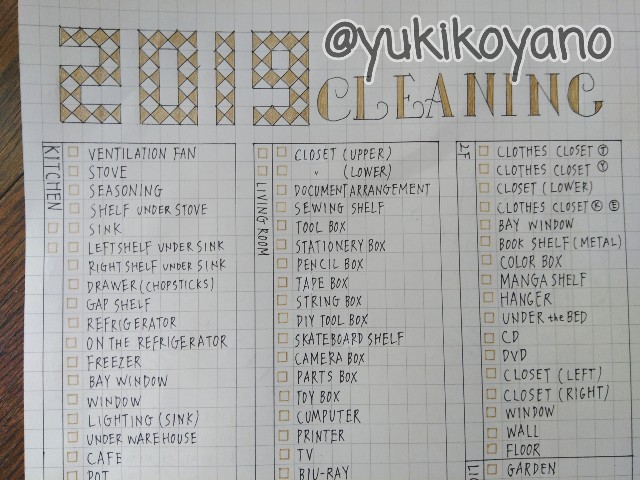 @yukikoyano
2019 CLEANING
KITCHEN
VENTILATION FAN
STOVE
SEASONING
SHELF UNDER STOVE
SINK
LEFT SHELF UNDER SINK
RIGHT SHELF UNDER SINK
DRAWER (CHOPSTICKS)
GAP SHELF
REFRIGERATOR
ON THE REFRIGERATOR
FREEZER
BAY WINDOW
WINDOW
LIGHTING (SINK)
UNDER WAREHOUSE
CAFE
POT
LIVING ROOM
CLOSET (UPPER)
〃 (LOWER)
DOCUMENT ARRANGEMENT
SEWING SHELF
TOOL BOX
STATIONERY BOX
PENCIL BOX
TAPE BOX
STRING BOX
DIY TOOL BOX
SKATEBOARD SHELF
CAMERA BOX
PARTS BOX
TOY BOX
CUMPUTER
PRINTER
TV
BlU-RAY
2F
CLOTHES CLOSET Ⓣ
CLOTHES CLOSET Ⓨ
CLOSET (LOWER)
CLOTHES CLOSET Ⓚ Ⓔ
BAY WINDOW
BOOK SHELF (METAL)
COLOR BOX
MANGA SHELF
HANGER
UNDER the BED
CD
DVD
CLOSET (LEFT)
CLOSET (RIGHT)
WINDOW
WALL
FLOOR
GARDEN